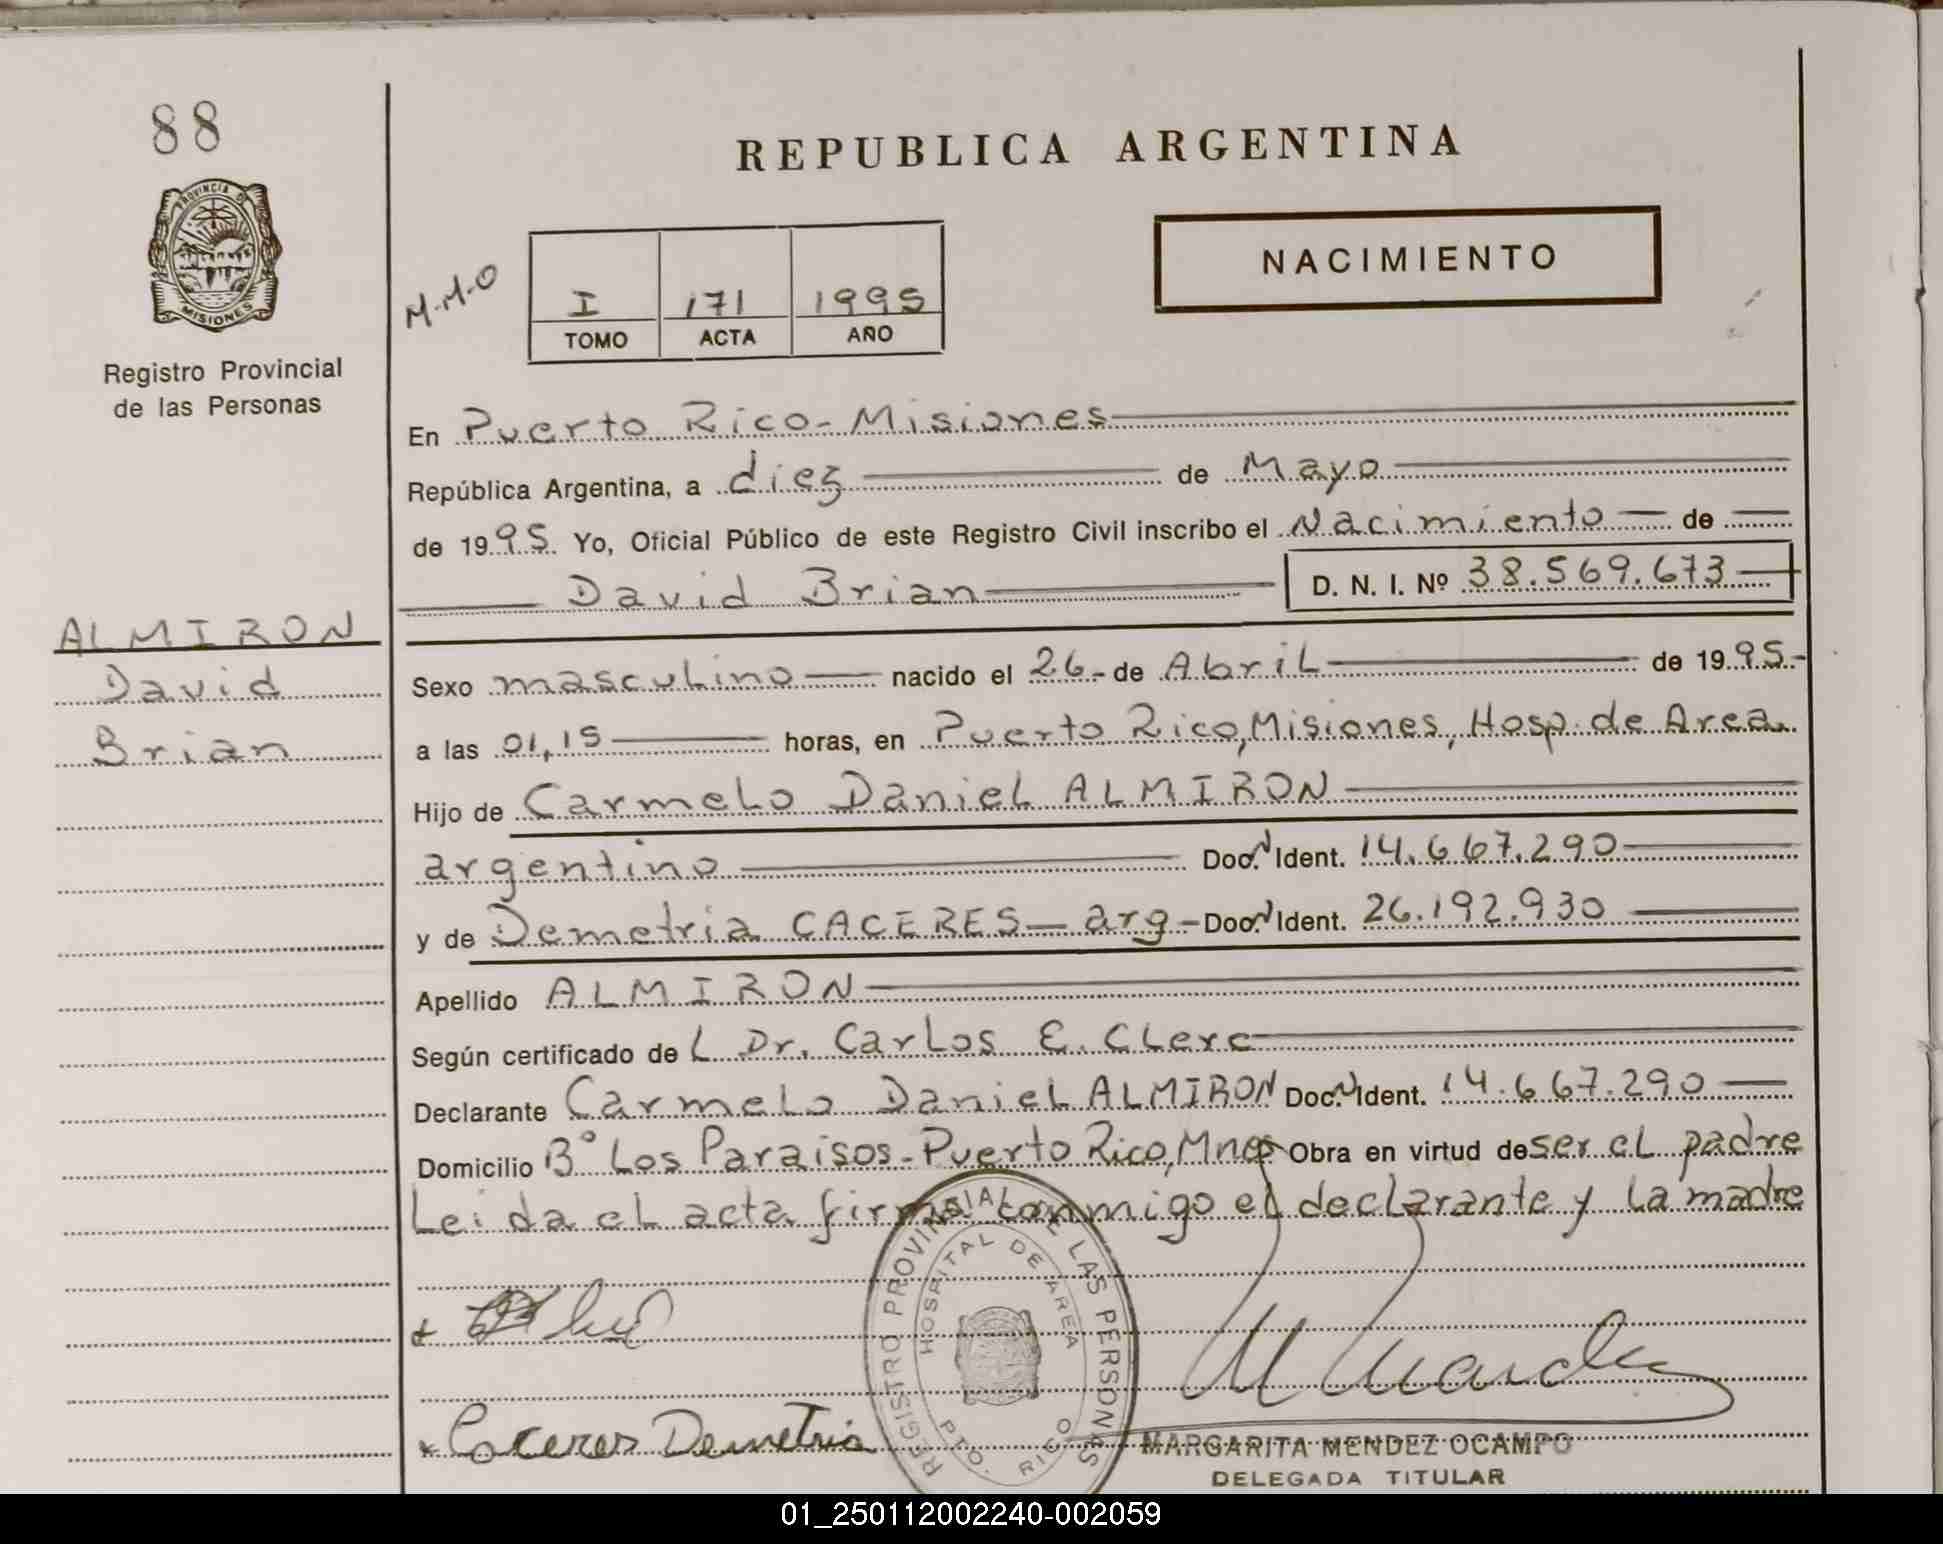 88
PROVINCIA DE
MISIONES
Registro Provincial
de las Personas
ALMIRON
David
Brian
REPUBLICA ARGENTINA
M.M.O
I 171 1995
TOMO ACTA AÑO
NACIMIENTO
En Puerto Rico - Misiones
República Argentina, a diez de Mayo
de 1995. Yo, Oficial Público de este Registro Civil inscribo el Nacimiento de
David Brian D. N. I. Nº 38.569.673
Sexo masculino nacido el 26 - de Abril de 1995.-
a las 01,15 horas, en Puerto Rico, Misiones, Hosp. de Area
Hijo de Carmelo Daniel ALMIRON
argentino Doc. N Ident. 14.667.290
y de Demetria CACERES - arg - Doc. N Ident. 26.192.930
Apellido ALMIRON
Según certificado de L Dr. Carlos E. Clerc
Declarante Carmelo Daniel ALMIRON Doc. N Ident. 14.667.290
Domicilio Bº Los Paraisos - Puerto Rico, Mnes Obra en virtud de ser el padre
Leida el acta firma conmigo el declarante y la madre
REGISTRO PROVINCIAL DE LAS PERSONAS
HOSPITAL DE AREA
PTO. RICO
Caceres Demetria
MARGARITA MENDEZ OCAMPO
DELEGADA TITULAR
01_250112002240-002059